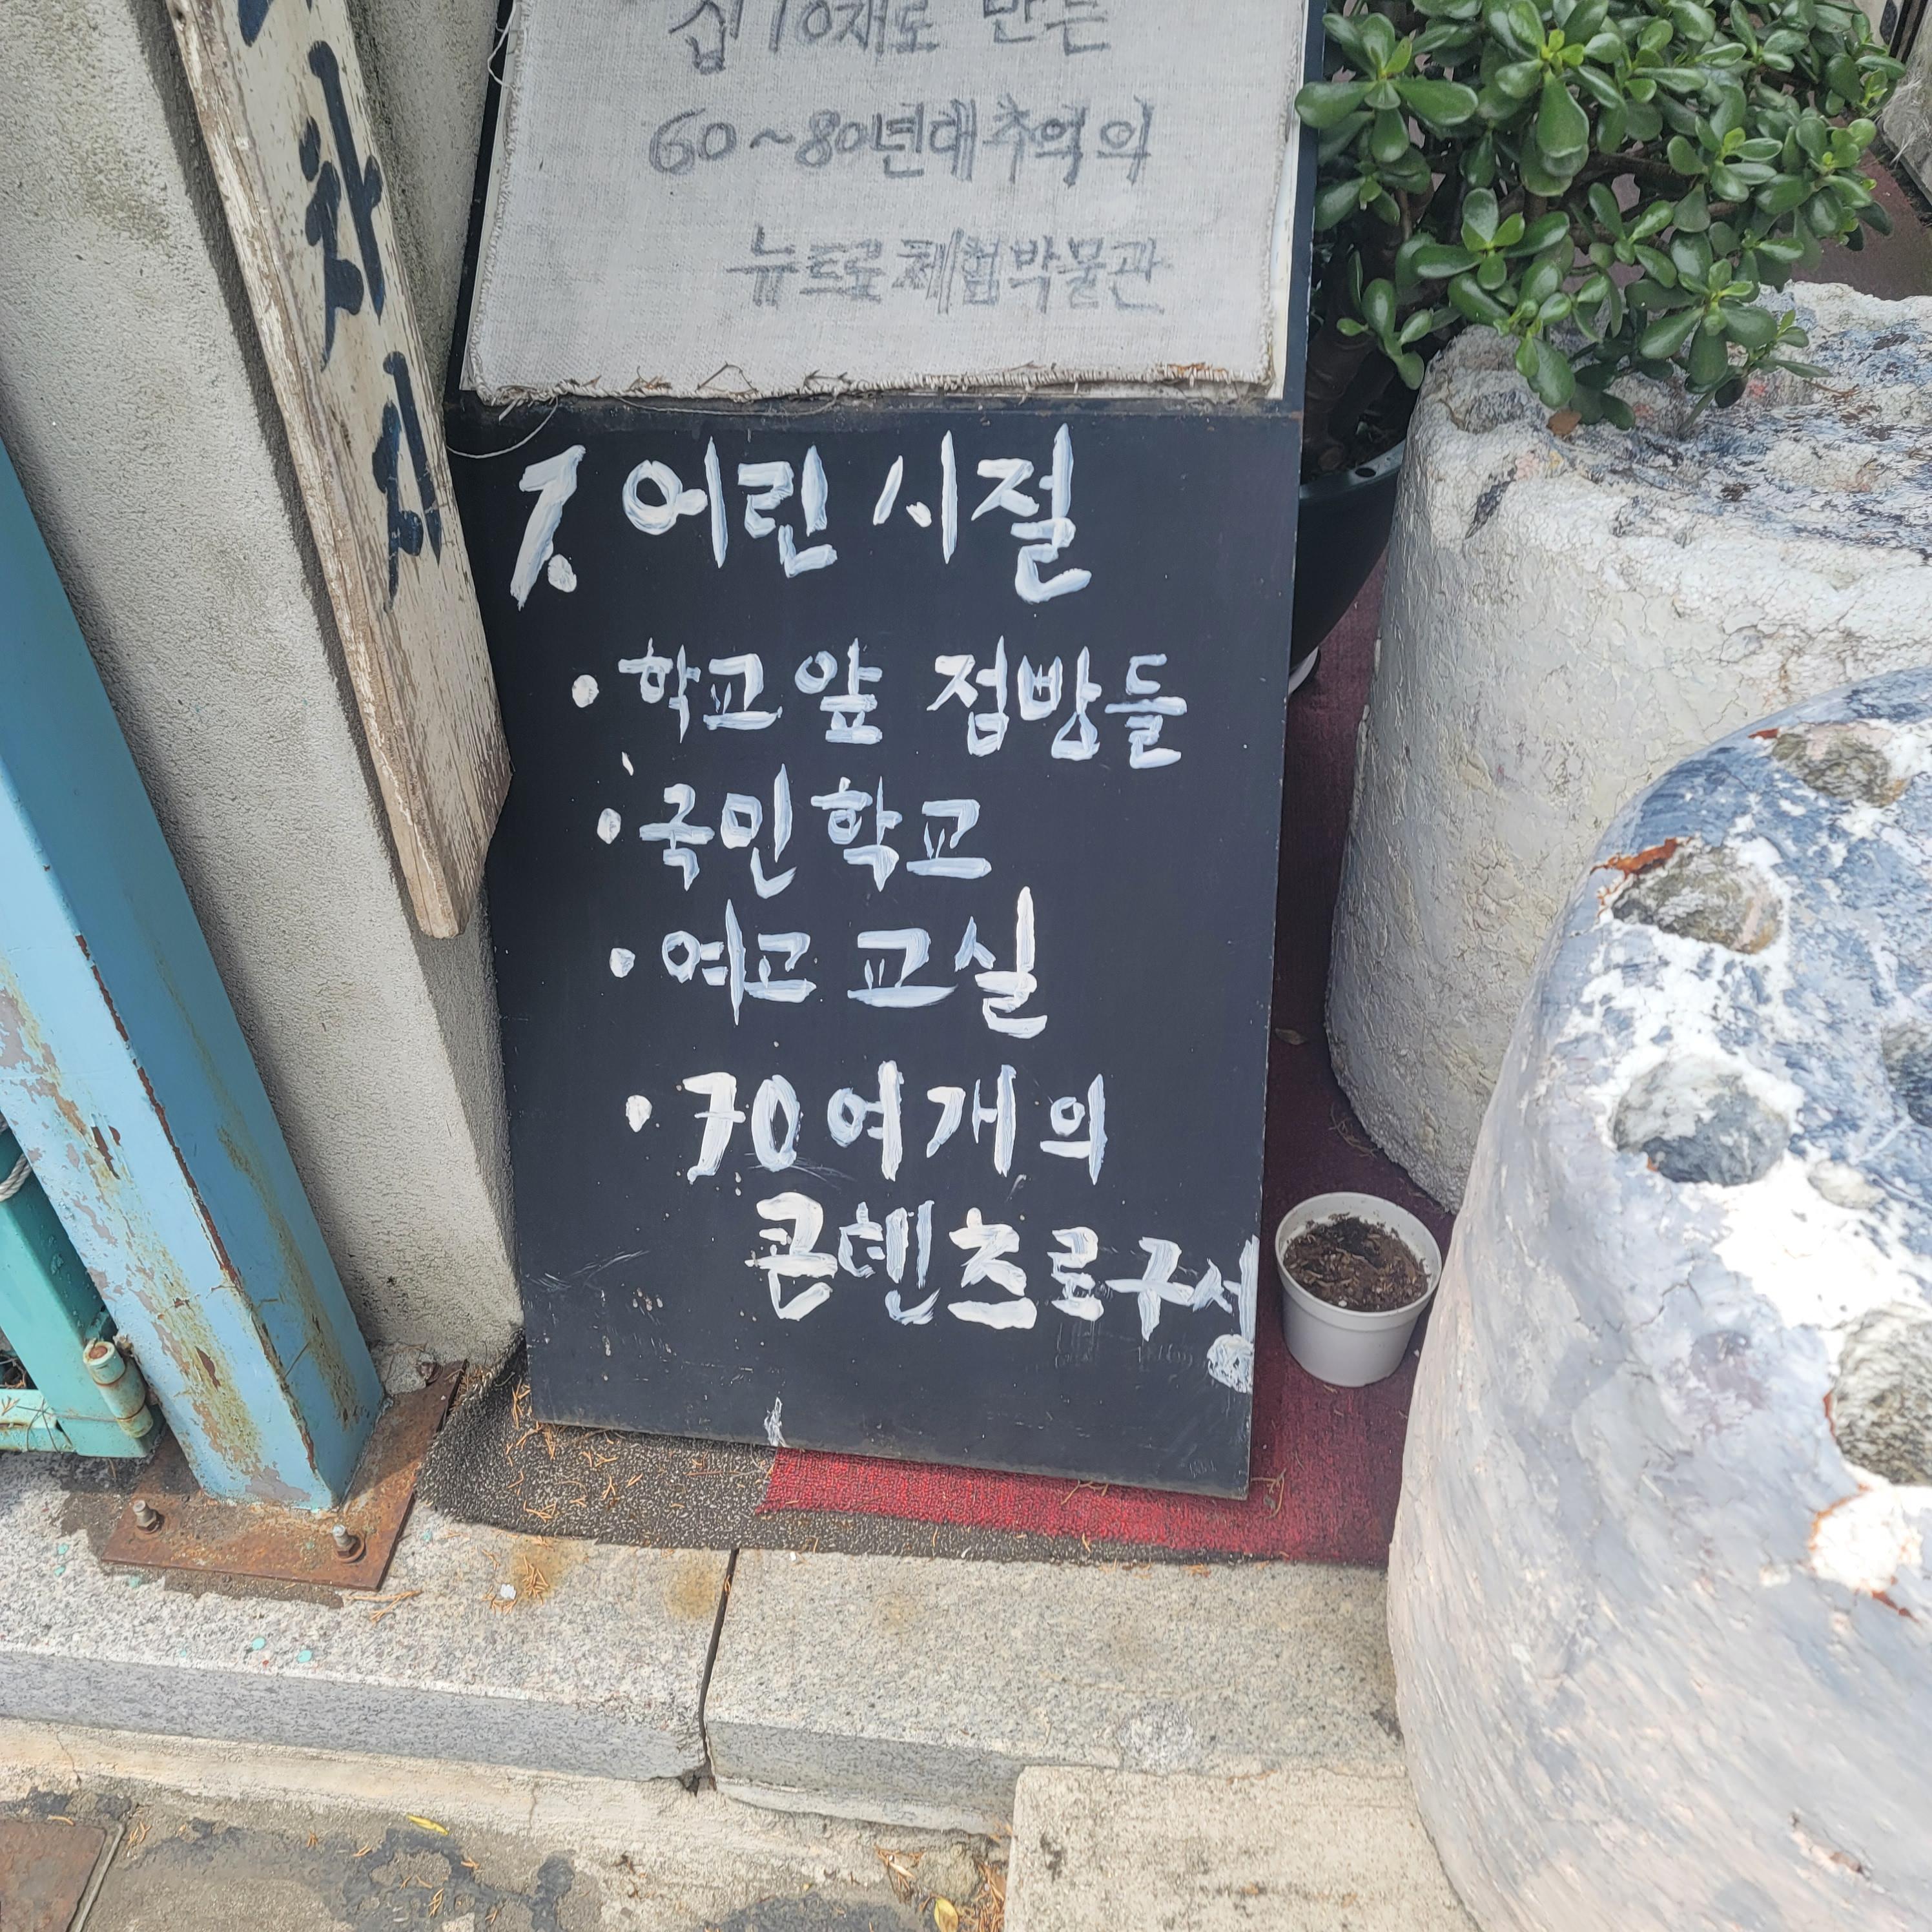 십 10재로 만든
60~80년대 추억의
뉴트로 체험박물관
7. 어린 시절
• 학교 앞 점빵들
• 국민학교
• 여고 교실
• 70여개의
콘텐츠로구성